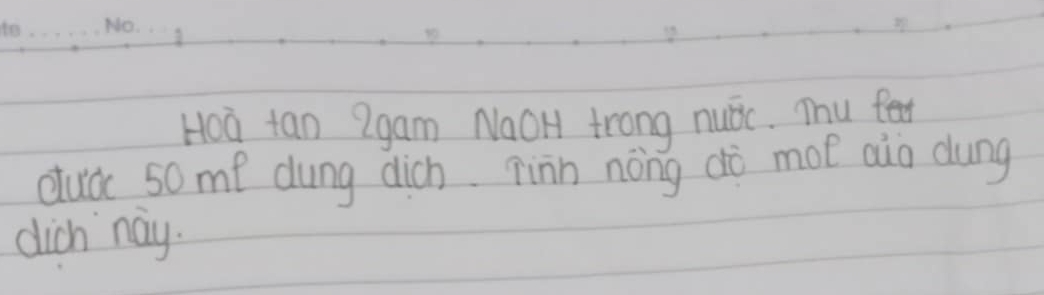 No.
Hoà tan 2gam NaOH trong nước. Thu
được 50 ml dung dịch. Tính nồng độ mol của dung
dịch này.